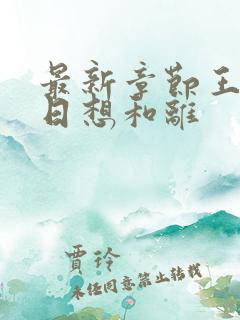 最新章節王
日想和離
賈玲
未经同意禁止转载